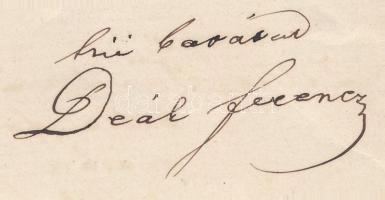 hű barátod
Deák Ferencz